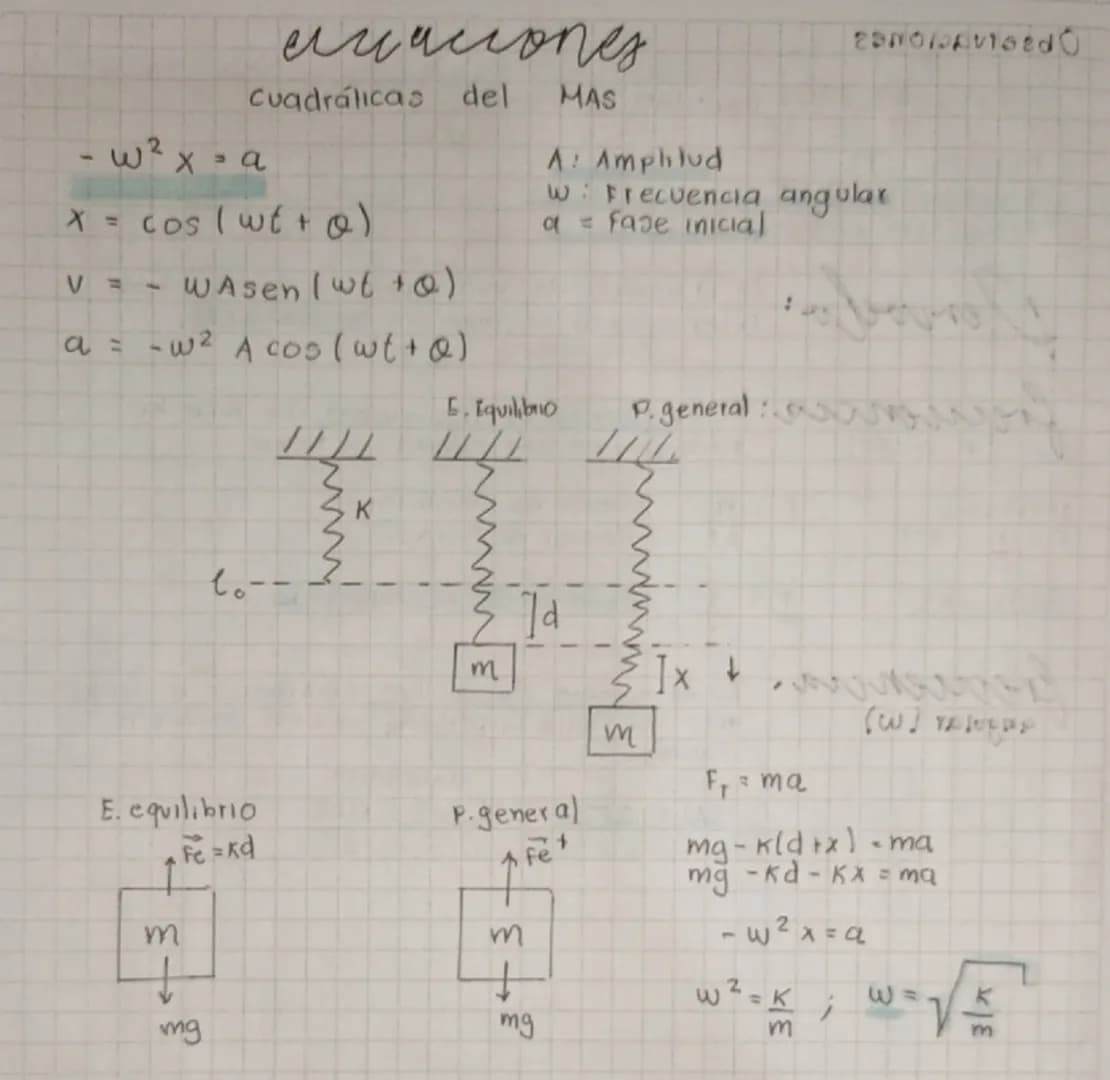 ecuaciones
cuadráticas del MAS
- w² x = a
x = cos (wt + Q)
v = - wAsen (wt + Q)
a = -w² A cos (wt + Q)
A: Amplitud
w: Frecuencia angular
a = Fase inicial
E. Equilibrio
P. general:
K
lo
d
x
m
m
E. equilibrio
Fe = Kd
m
mg
P. general
Fe +
m
mg
Fr = ma
mg - K(d + x) = ma
mg - Kd - Kx = ma
- w² x = a
w² = K/m ; w = √K/m